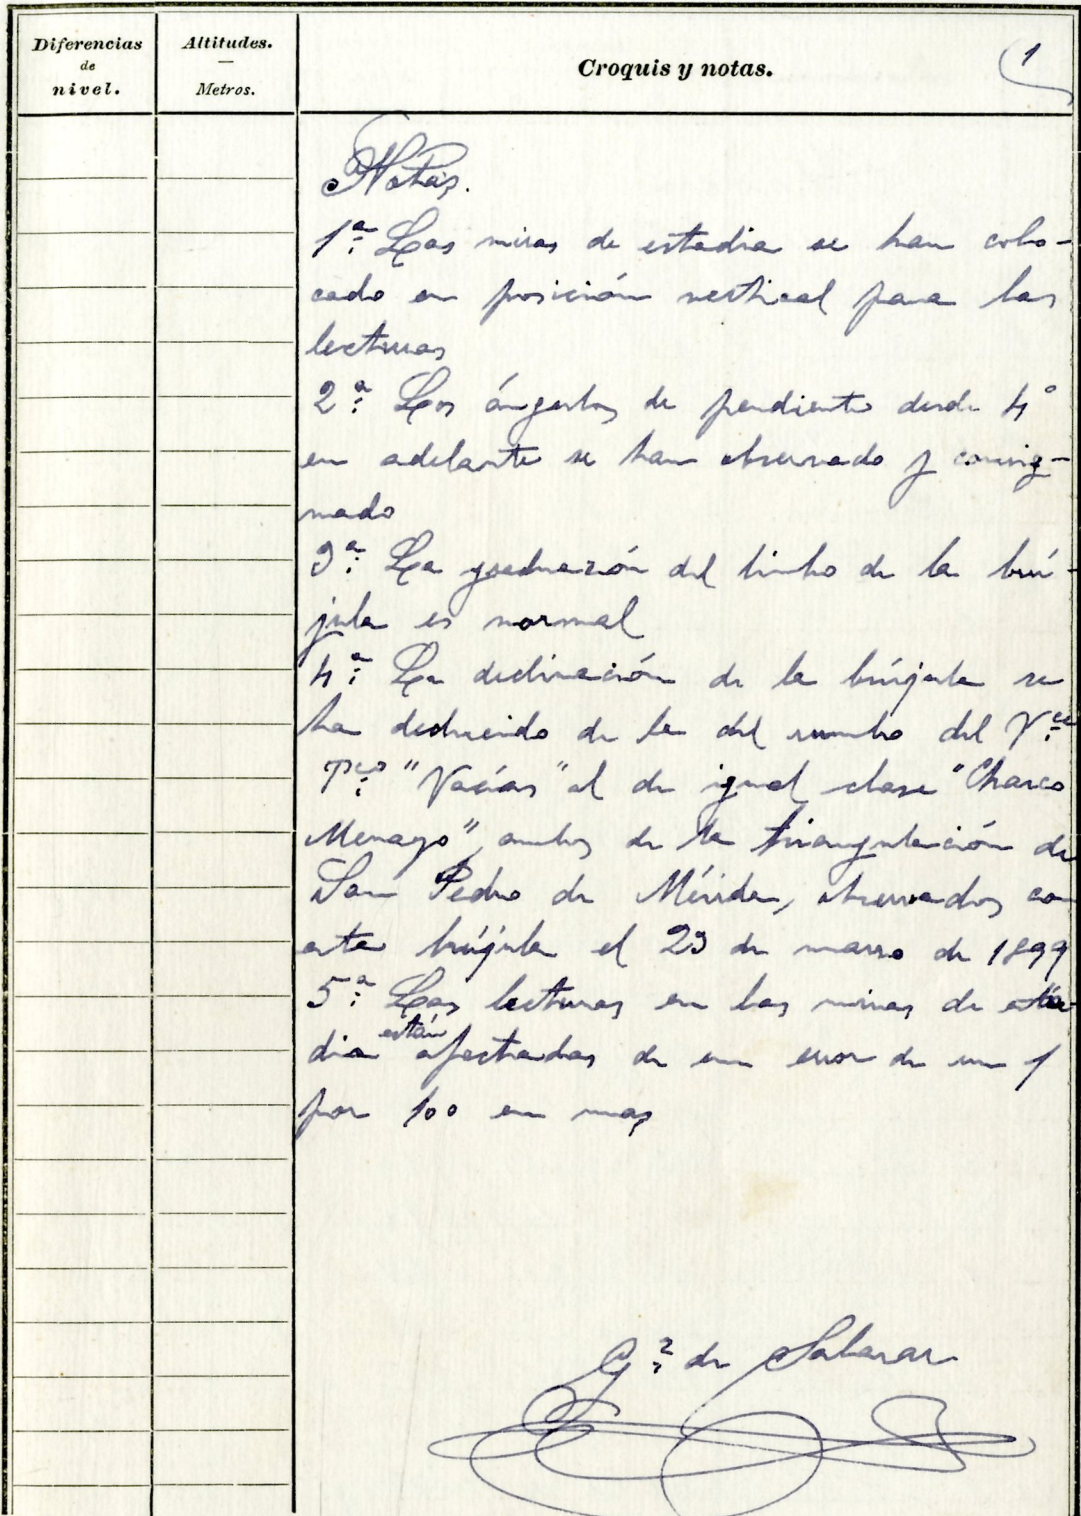 Diferencias
de
nivel.
Altitudes.
Metros.
Croquis y notas.
1
Notas.
1.ª Las miras de estadia se han colo-
cado en posición vertical para las
lecturas
2.ª Los ángulos de pendiente desde 4°
en adelante se han observado y consig-
nado
3.ª La graduación del limbo de la brú-
jula es normal
4.ª La declinación de la brújula se
ha deducido de la del rumbo del V.ce
Tco "Vacías" al de igual clase "Charco
Menayo" ambos de la triangulación de
San Pedro de Mérida, observados con
esta brújula el 23 de marzo de 1899
5.ª Las lecturas en las miras de esta-
dia están afectadas de un error de un 1
por 100 en mas
G.z de Salazar